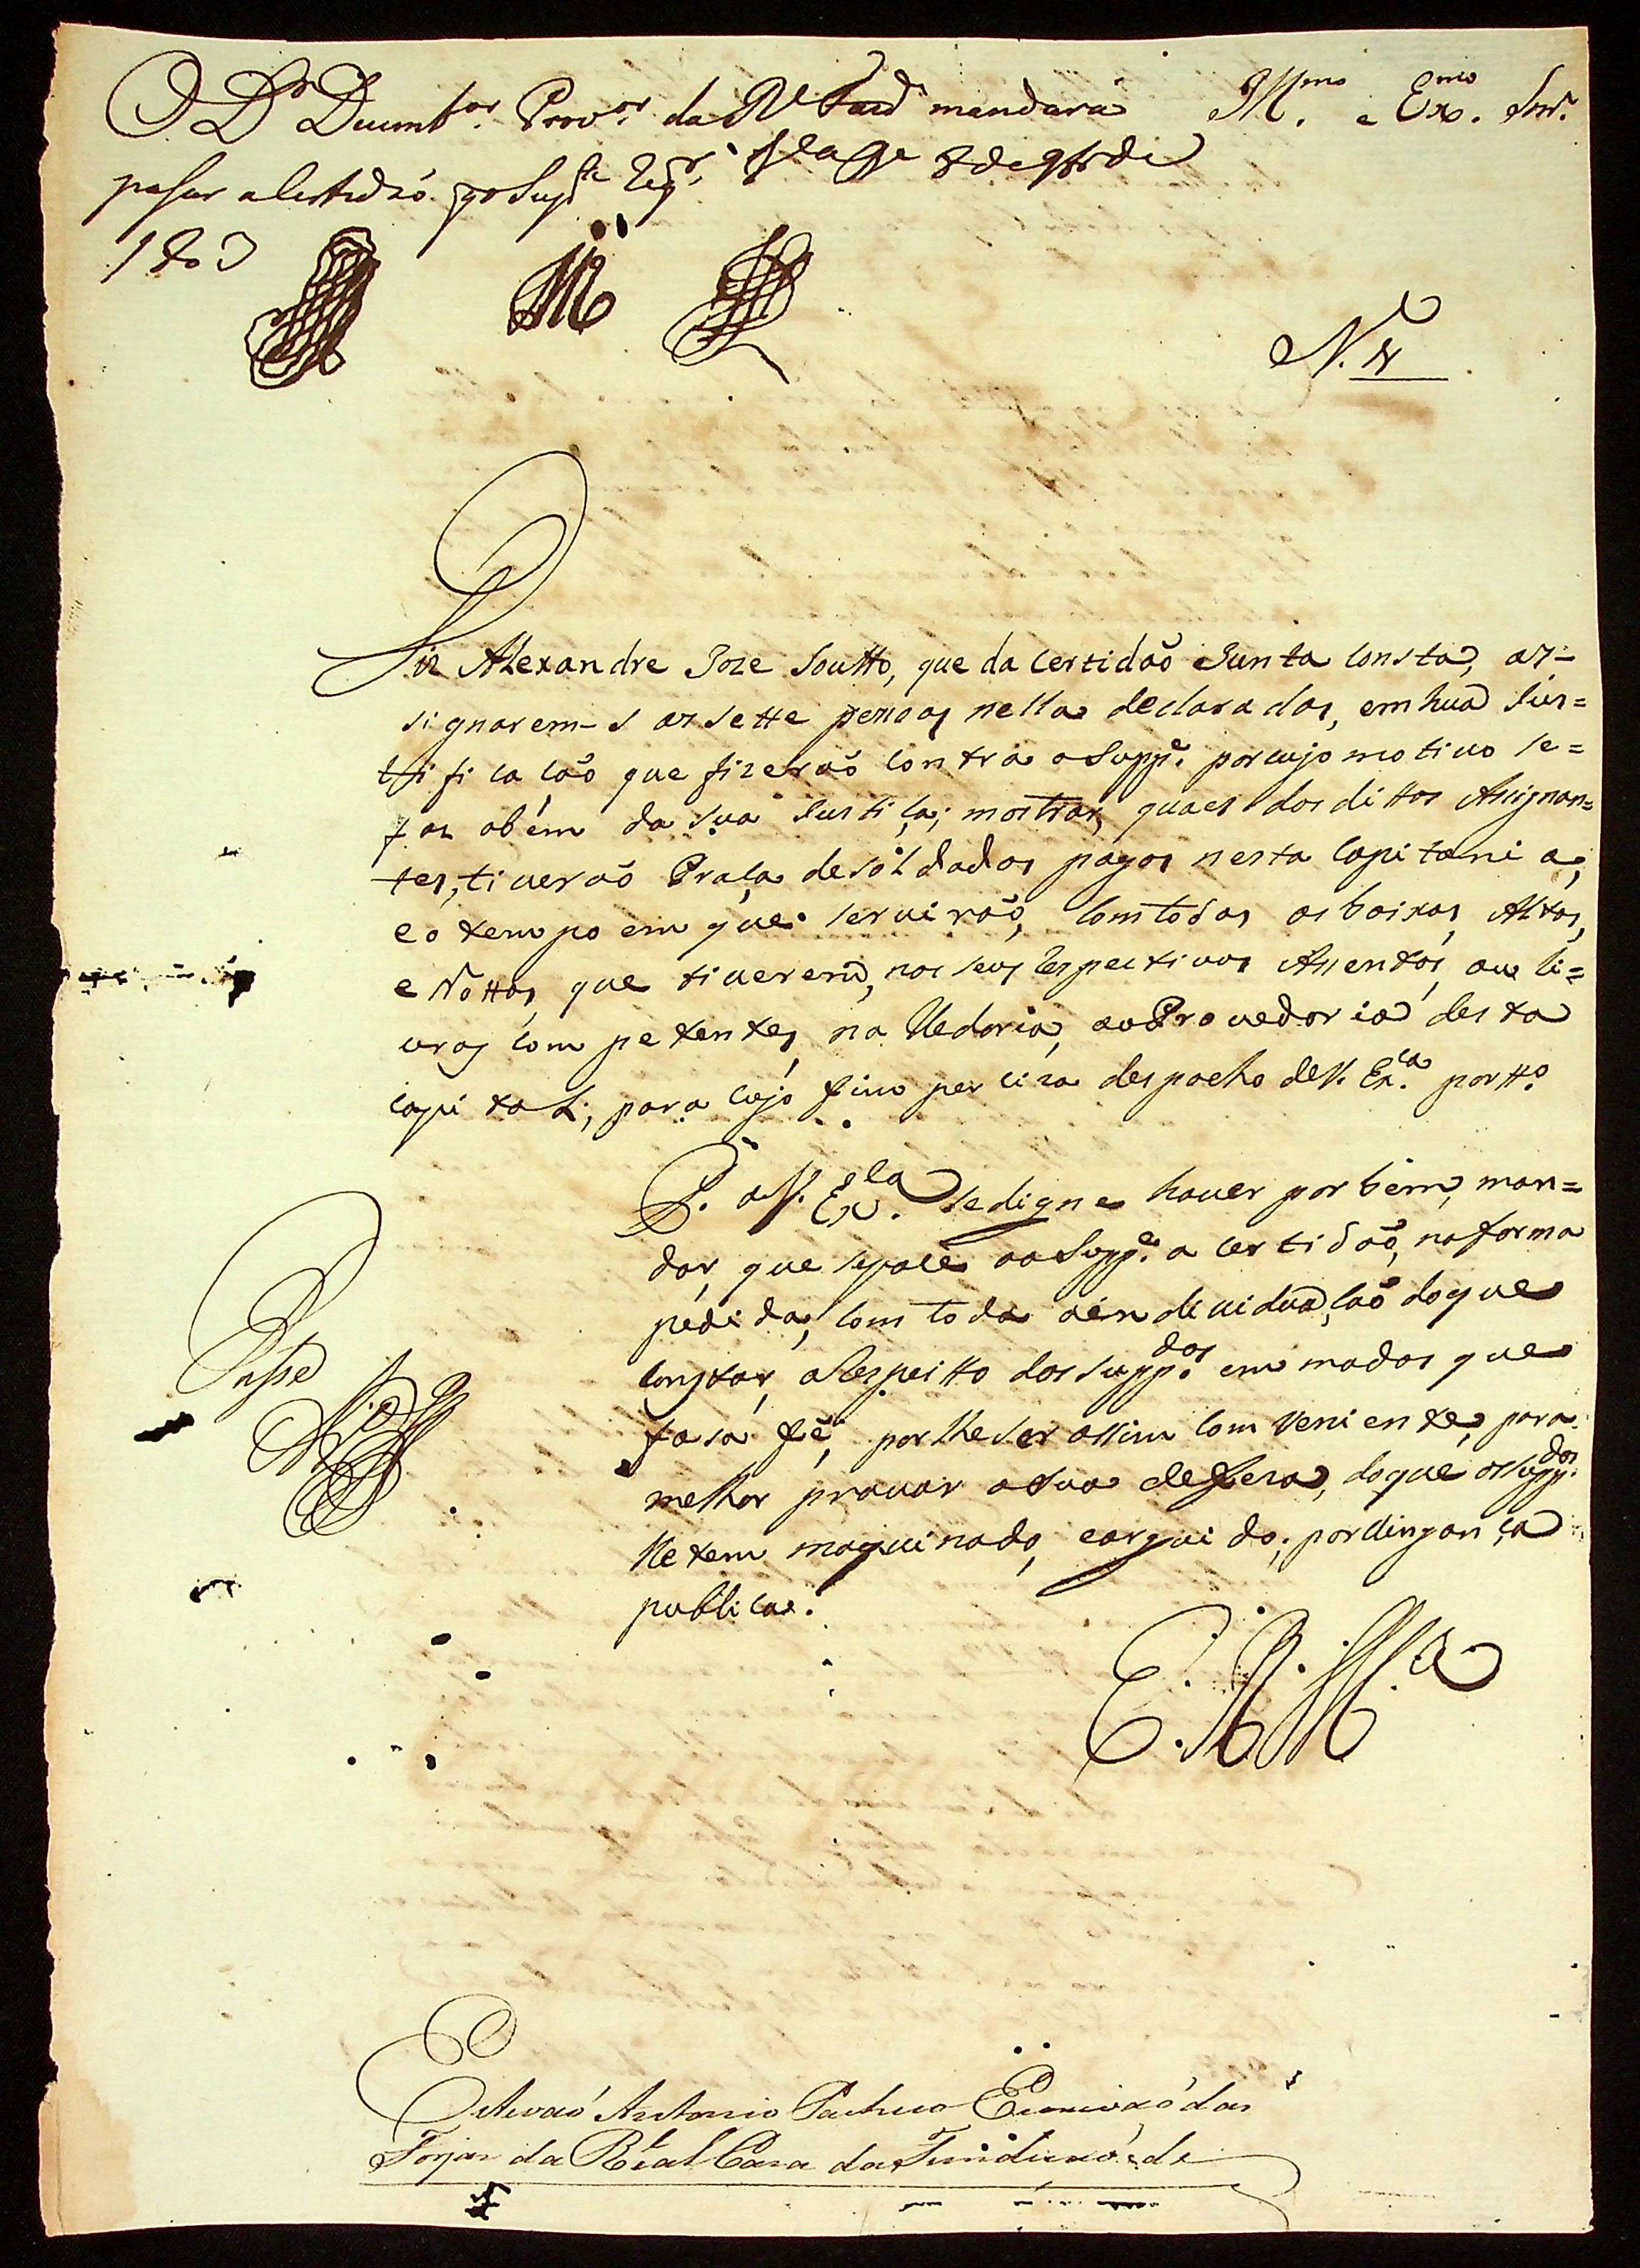 O D.r Dezemb.or Prov.or da R.l Faz.da mandará
passar a Certidaó q̃ o Sup.te reqr. V.a 
1803
Ill.mo e Ex.mo Snr.
N. 4
Diz Alexandre Joze Soutto, que da Certidaõ Junta consta, as-
signarem-s as sette pesoas nella declaradas, em huã Jus=
tifi ca caõ que fizeraõ contra o Supp.e por cujo motivo se=
faz abem da sua Justiça; mostrar, quaes dos dittos Assignan=
tes, tiveraõ Praça de soldados pagos nesta Capitania;
e o tempo em que serviraõ, com todas as baixas, Altas,
e Nottas, que tiverem, nos seus Respectivos Assentos, ou li=
vros competentes, na Vedoria, ou Provedoria desta
Capital; para cujo fim perciza despacho de V. Ex.ca por tt.o
P. a V. Ex.ca se digne haver por bem, man=
dar, que se pace ao Supp.e a certidaõ, na forma
pedida, com toda aéndeviduaçaõ do que
constar, a Respeitto dos supp.dos em modos que
fasa fé, por lhe ser assim comveniente, para
melhor provar a sua deffeza, do que os supp.dos
lhe tem maquinado, e arguido; por vingança
publica.
E. R. M.ce
Passe
Estevaó Antonio Pacheco Escrivaó das
Forjas da Real Caza da Fundicaó de